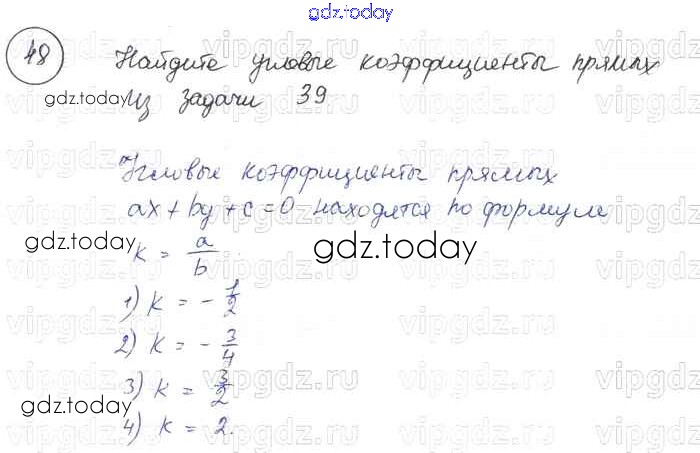 gdz.today
48 Найдите угловые коэффициенты прямых
gdz.today из задачи 39
Угловые коэффициенты прямых
ax + by + c = 0 находятся по формуле
gdz.today k = a/b gdz.today
1) k = - 1/2
2) k = - 3/4
3) k = 3/2
gdz.today
4) k = 2.
vipgdz.ru